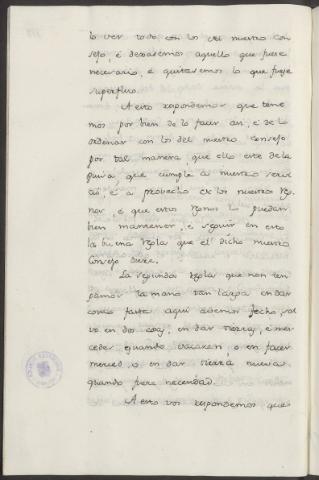 lo ver todo con los del nuestro con
sejo, é dexasemos aquello que fuere
necesario, é quitasemos lo que fuese
superfluo.
A esto respondemos que tene
mos por bien de lo facer asi, é de lo
ordenar con los del nuestro Consejo
por tal manera, que ello este de la
guisa que cumple á nuestro servi
, é á provecho de los nuestros Reg
nos, é que estos Regnos lo puedan
bien mantener, é seguir en esto
la buena regla que el dicho nuestro
Consejo diere.
La segunda regla que non ten
gamos la mano tan larga en dar
como fasta aqui avemos fecho, sal
vo en dos cosas, en dar tierra, é mer
ced quando vacaren, o en facer
merced, o en dar tierra nueva
quando fuere necesidad.
A esto vos respondemos que